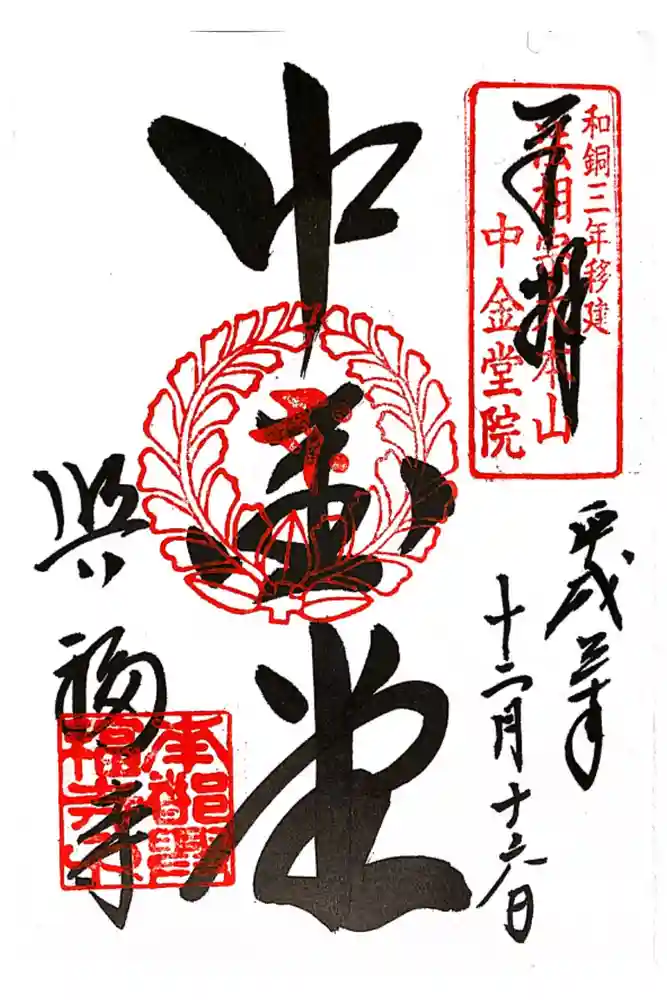 和銅三年移建
法相宗大本山
中金堂院
奉拝
平成三十年
十二月十六日
中金堂
興福寺